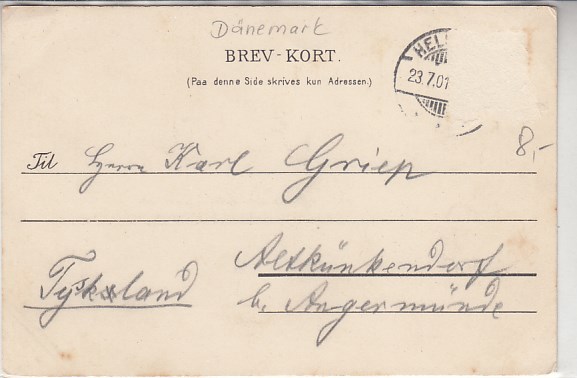 Dänemark
BREV-KORT.
(Paa denne Side skrives kun Adressen.)
HEL
23.7.01
8,-
Til Herrn Karl Griep
Altkünkendorf
Tyskland b. Angermünde